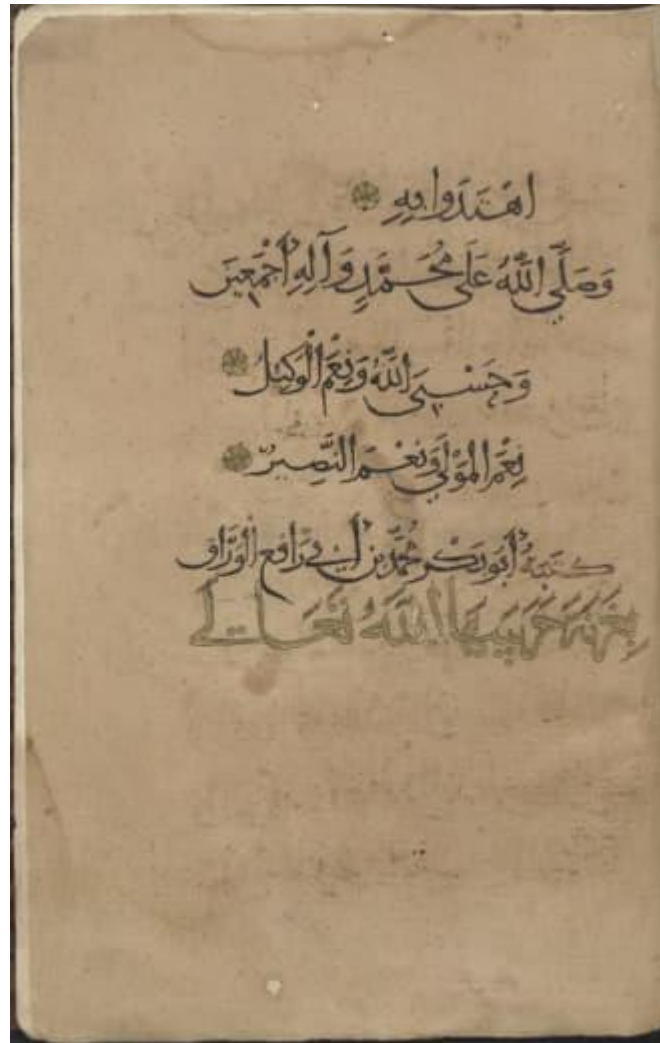 اهْتَدَوا بِهِ
وَصَلَّى اللَّهُ عَلَى مُحَمَّدٍ وَآلِهِ أَجْمَعِينَ
وَحَسْبِيَ اللَّهُ وَنِعْمَ الْوَكِيلُ
نِعْمَ الْمَوْلَى وَنِعْمَ النَّصِيرُ
كتبهُ أبو بكر محمد بن أبي رافع الوَرَّاق
اللَّه تعالى